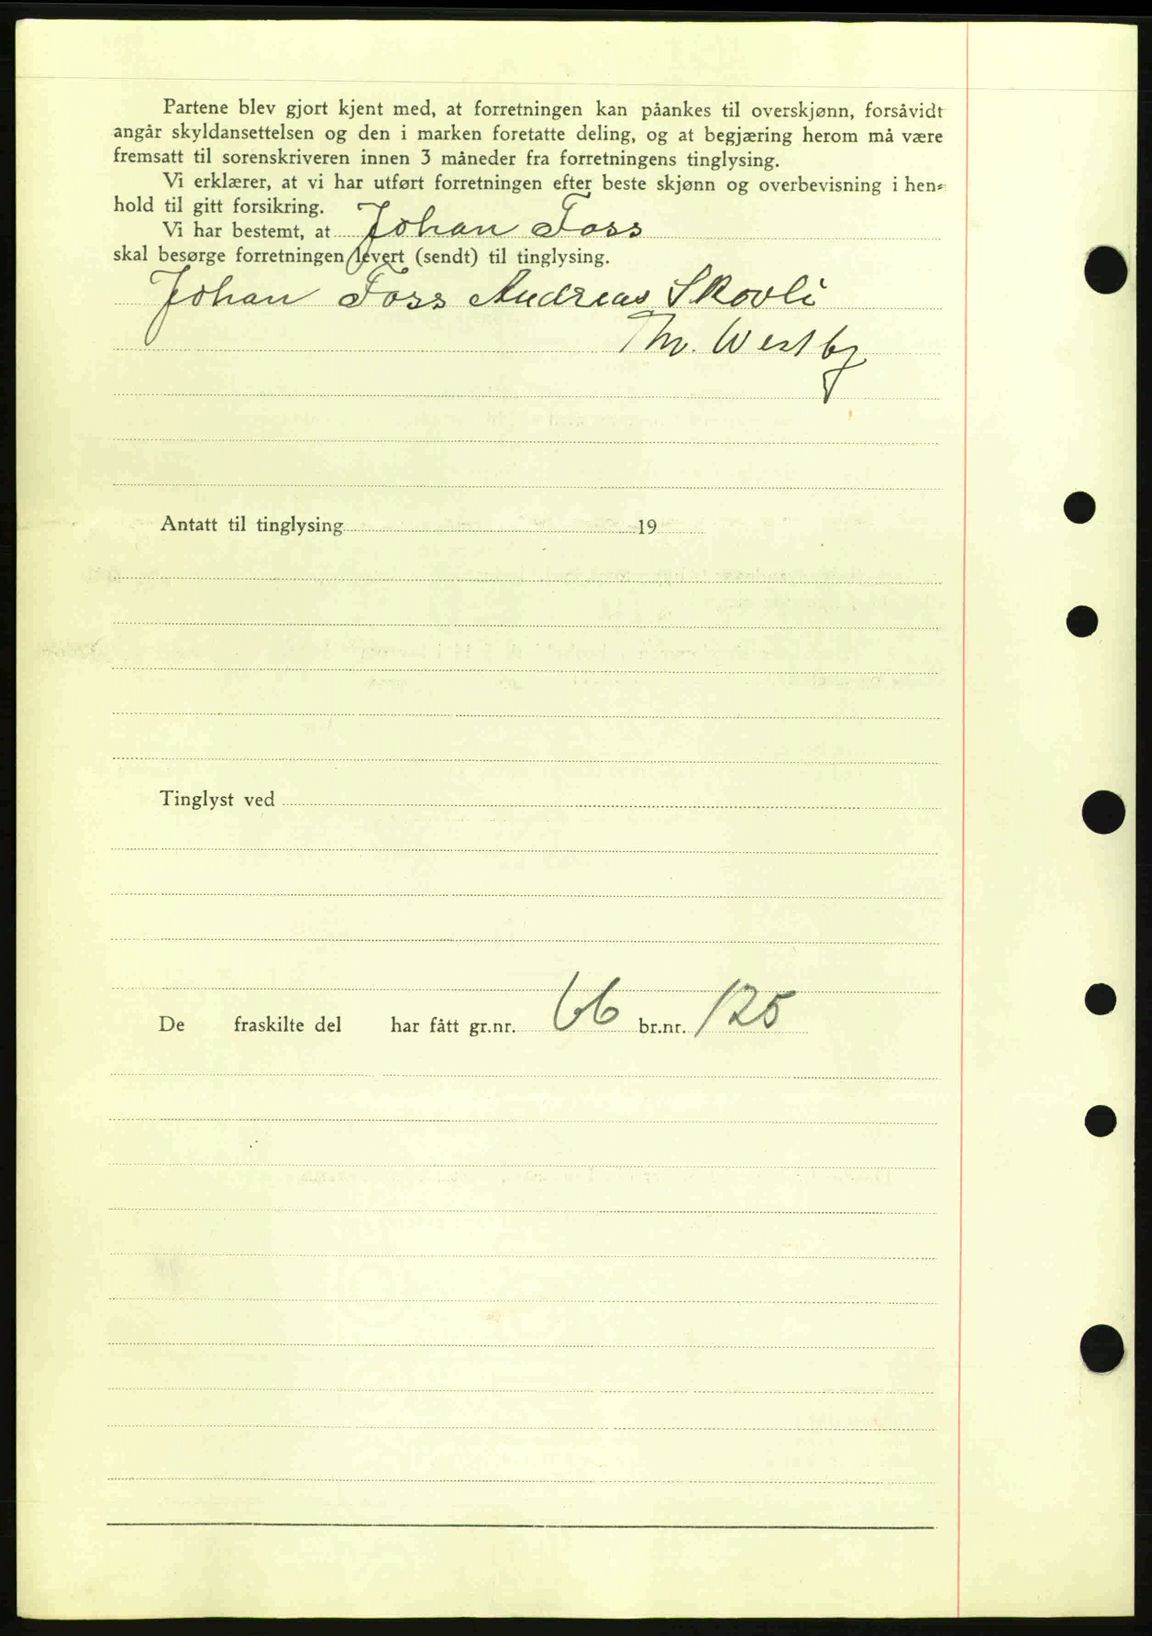 Partene blev gjort kjent med, at forretningen kan påankes til overskjønn, forsåvidt
angår skyldansettelsen og den i marken foretatte deling, og at begjæring herom må være
fremsatt til sorenskriveren innen 3 måneder fra forretningens tinglysing.
Vi erklærer, at vi har utført forretningen efter beste skjønn og overbevisning i hen-
hold til gitt forsikring.
Vi har bestemt, at Johan Foss
skal besørge forretningen levert (sendt) til tinglysing.
Johan Foss Andreas Skovli
M. Westby
Antatt til tinglysing 19
Tinglyst ved
De fraskilte del har fått gr.nr. 66 br.nr. 125